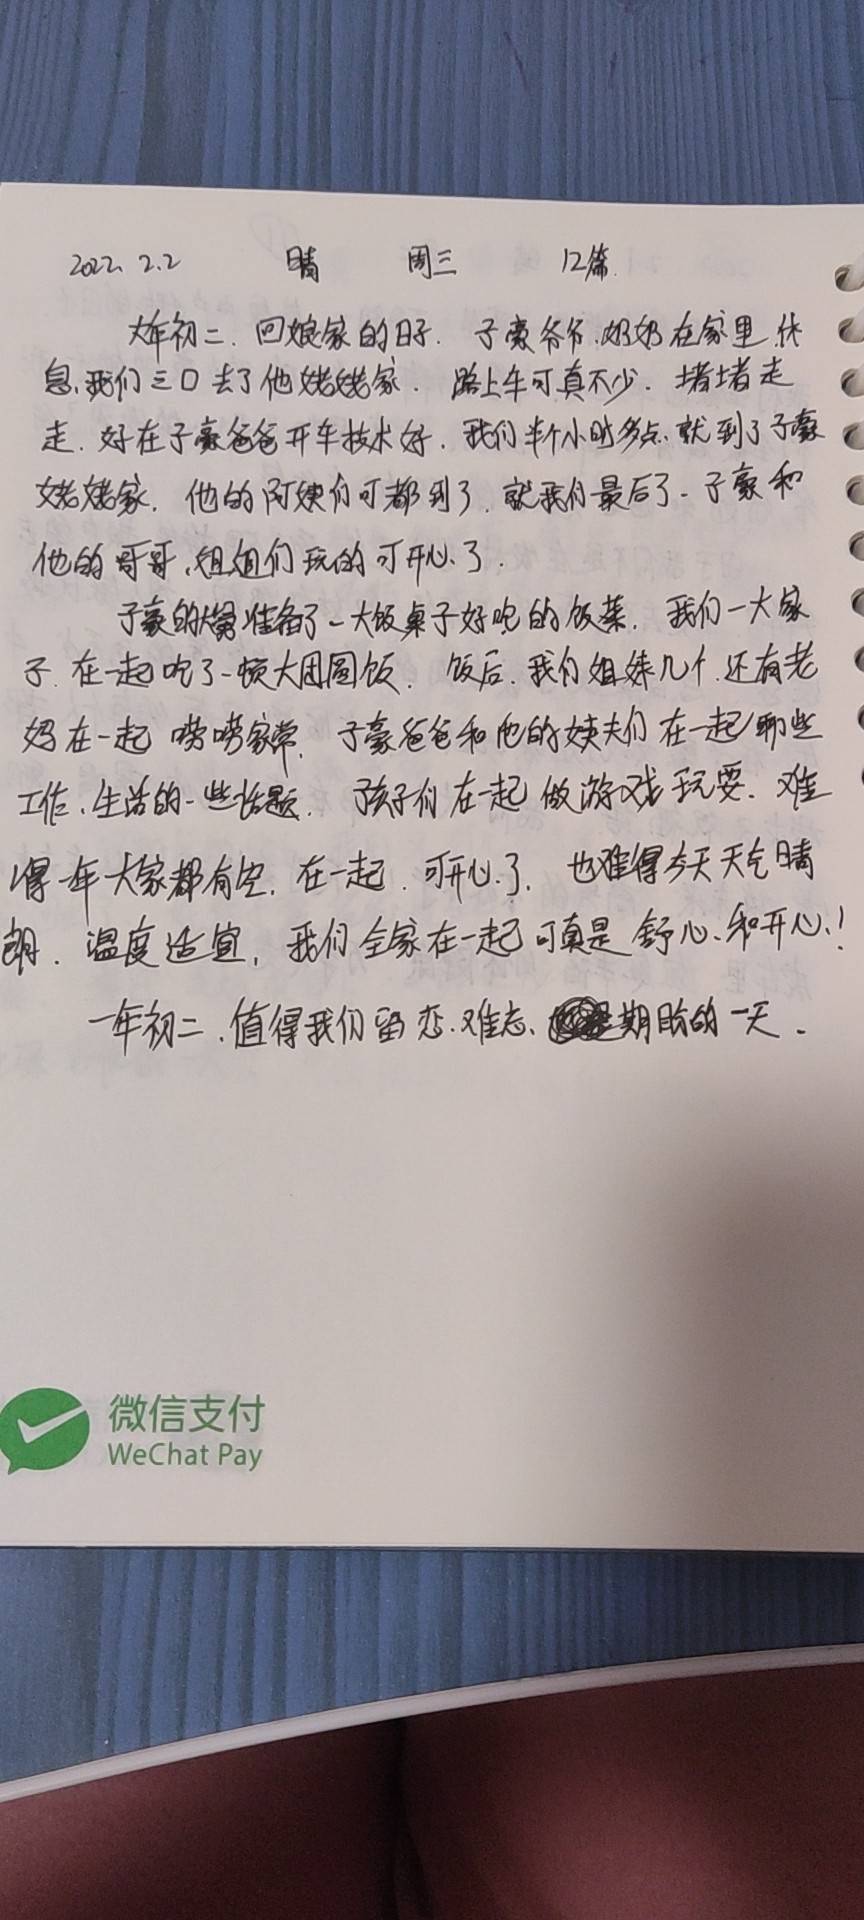 2022.2.2 晴 周三 12篇.
大年初二. 回娘家的日子. 子豪爷爷.奶奶在家里休
息,我们三口去了他姥姥家. 路上车可真不少. 堵堵走
走. 好在子豪爸爸开车技术好. 我们半个小时多点.就到了子豪
姥姥家. 他的阿姨们可都到了. 就我们最后了. 子豪和
他的哥哥、姐姐们玩的可开心了.
子豪的舅准备了一大饭桌子好吃的饭菜. 我们一大家
子.在一起吃了一顿大团圆饭. 饭后.我们姐妹几个.还有老
妈在一起唠唠家常. 子豪爸爸和他的姨夫们在一起聊些
工作、生活的一些话题. 孩子们在一起做游戏玩耍. 难
得一年大家都有空. 在一起. 可开心了. 也难得今天天气晴
朗. 温度适宜, 我们全家在一起可真是舒心、和开心!
一年初二.值得我们留恋.难忘、期盼的一天.
微信支付
WeChat Pay